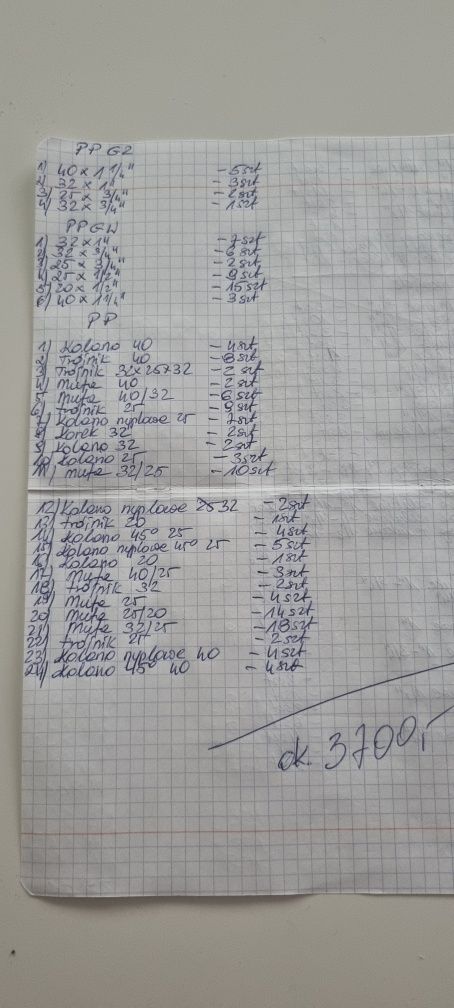 PP GZ
1) 40 x 1 1/4" - 5szt
2) 32 x 1" - 3szt
3) 25 x 3/4" - 2szt
4) 32 x 3/4" - 1szt
PP GW
1) 32 x 1" - 7szt
2) 32 x 3/4" - 6szt
3) 25 x 3/4" - 2szt
4) 25 x 1/2" - 9szt
5) 20 x 1/2" - 15szt
6) 40 x 1 1/4" - 3szt
PP
1) Kolano 40 - 4szt
2) trójnik 40 - 8szt
3) Trójnik 32x25x32 - 2szt
4) Mufa 40 - 2szt
5) Mufa 40/32 - 6szt
6) trójnik 25 - 9szt
7) Kolano nyplowe 25 - 7szt
8) Korek 32 - 2szt
9) Kolano 32 - 2szt
10) Kolano 25 - 3szt
11) Mufa 32/25 - 10szt
12) Kolano nyplowe 32 - 2szt
13) trójnik 20 - 1szt
14) Kolano 45° 25 - 4szt
15) Kolano nyplowe 45° 25 - 5szt
16) Kolano 20 - 1szt
17) Mufa 40/25 - 3szt
18) trójnik 32 - 2szt
19) Mufa 25 - 4szt
20) Mufa 25/20 - 14szt
21) Mufa 32/25 - 18szt
22) trójnik 25 - 2szt
23) Kolano nyplowe 40 - 4szt
24) Kolano 45° 40 - 4szt
ok. 3700,-